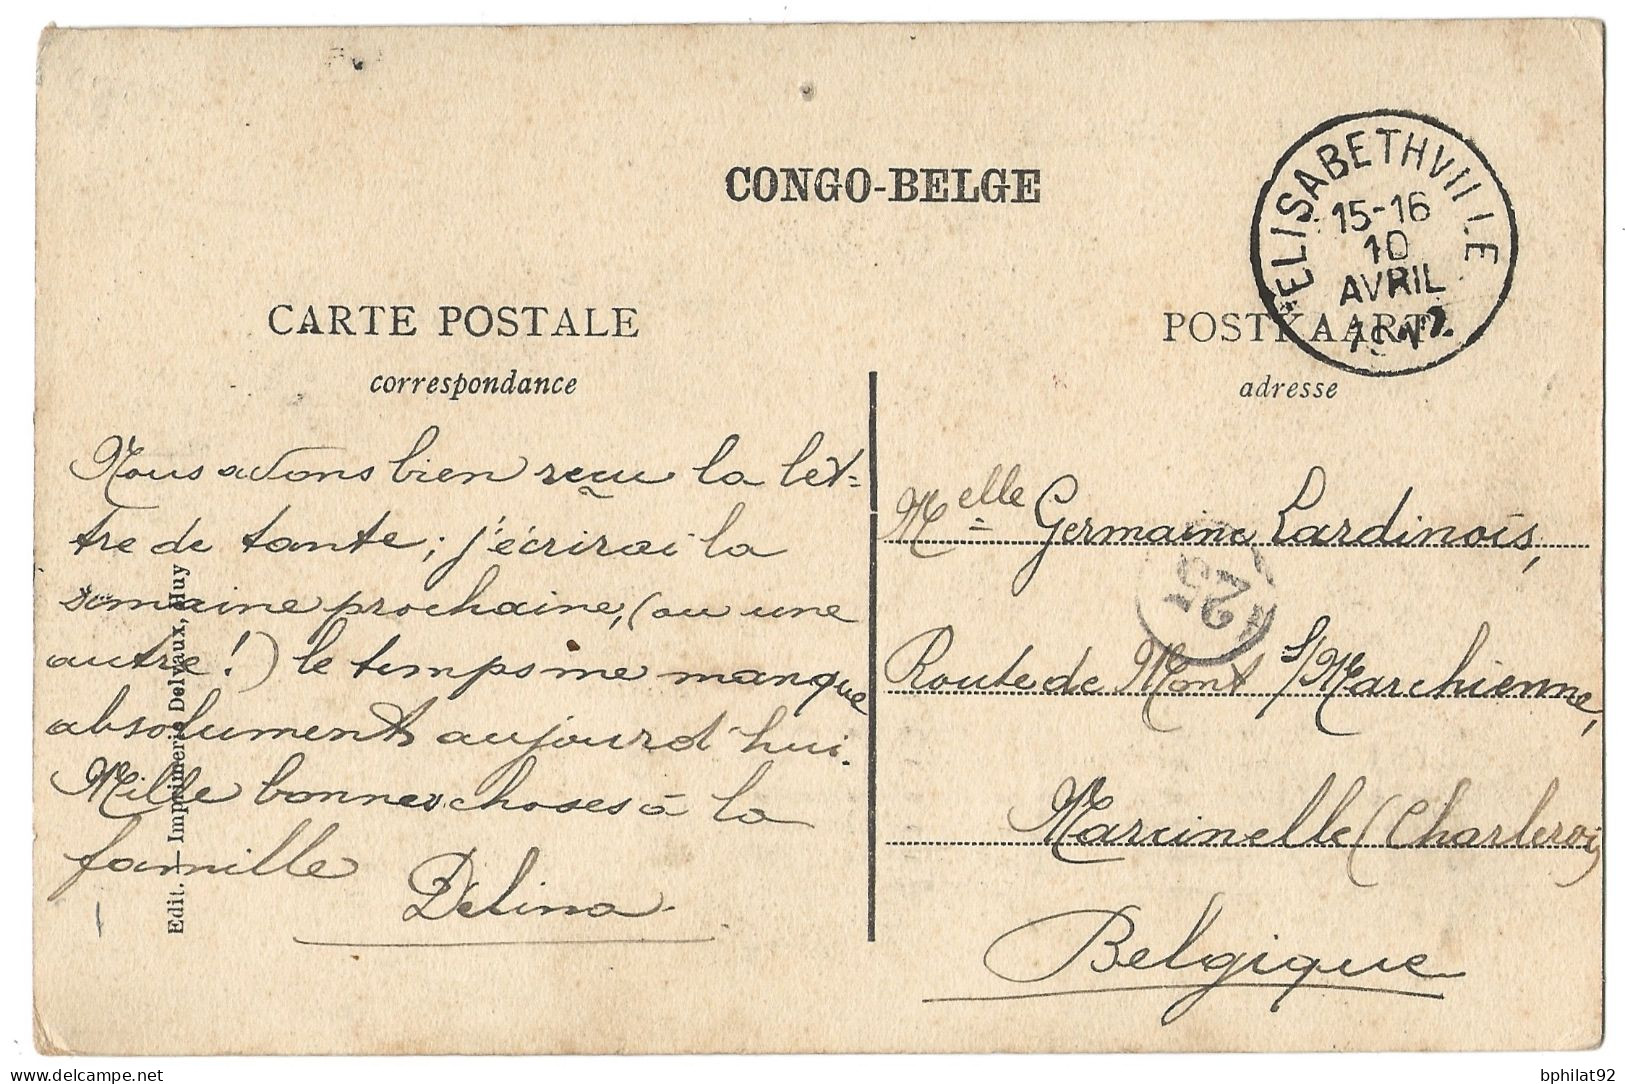 CONGO-BELGE
ELISABETHVILLE
15-16
10
AVRIL
CARTE POSTALE
POSTKAART
correspondance
adresse
Nous avons bien reçu la let-
tre de tante; j'écrirai la
semaine prochaine, (ou une
autre!) le temps me manque
absolument aujourd'hui.
Mille bonnes choses à la
famille
Délina
Edit. — Imprimerie Delvaux, Huy
Melle Germaine Lardinois,
25
Route de Mont s/Marchienne,
Marcinelle (Charleroi)
Belgique
delcampe.net
bphilat92